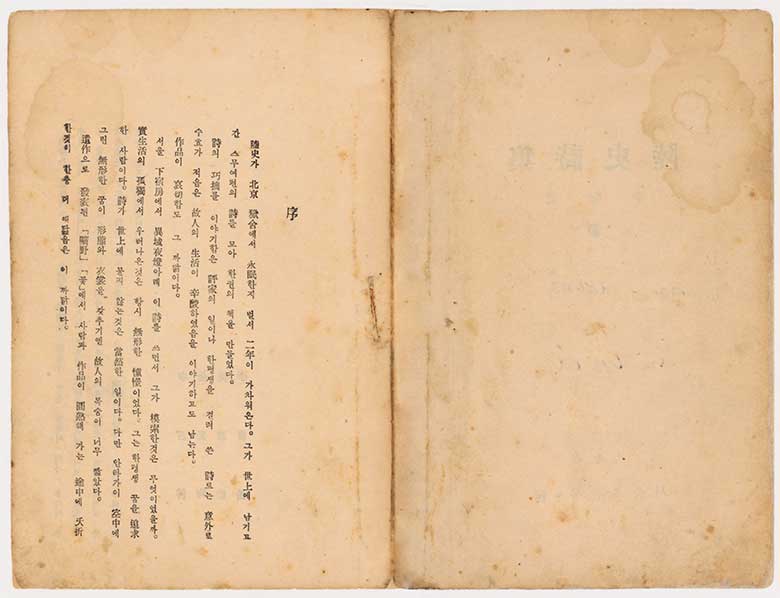 序
陸史가 北京 獄舍에서 永眠한지 벌서 二年이 가차워온다。그가 世上에 남기고
간 스무여편의 詩를 모아 한권의 책을 만들었다。
詩의 巧拙을 이야기함은 評家의 일이나 한평생을 걸려 쓴 詩로는 意外로
수효가 적음은 故人의 生活이 辛酸하였음을 이야기하고도 남는다。
作品이 哀切함도 그 까닭이다。
서울 下宿房에서 異域夜燈아래 이 詩를 쓰면서 그가 模索한것은 무엇이었을까。
實生活의 孤獨에서 우러나온것은 항시 無形한 憧憬이었다。그는 한평생 꿈을 追求
한 사람이다。詩가 世上에 묻지 않는것은 當然한 일이다。다만 안타가이 空中에
그린 無形한 꿈이 形態와 衣裳을 갖추기엔 故人의 목숨이 너무 짧았다。
遺作으로 發表된 「曠野」「꽃」에서 사람과 作品이 圓熟해 가는 途中에 夭折
한것이 한층 더 애닯음은 이 까닭이다。